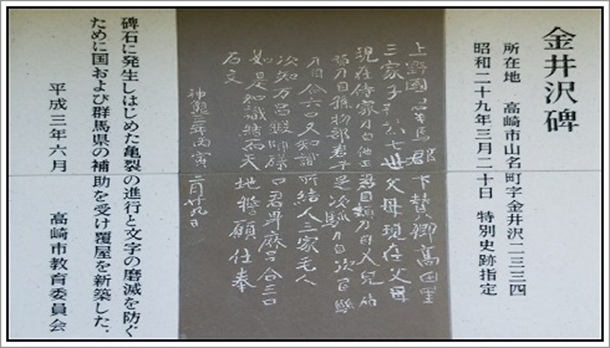 金井沢碑
所在地 高崎市山名町字金井沢二三三四
昭和二十九年三月二十日 特別史跡指定
上野國羣馬郡下賛郷高田里
三家子孫為七世父母現在父母
現在侍家刀自他田君目頬刀自又兒加
那刀自孫物部君午足次馴刀自次乙馴
刀自合六口又知識所結人三家毛人
次知万呂鍛師礒口君身麻呂合三口
如是知識結而天地誓願仕奉
石文
神亀三年丙寅二月廿九日
碑石に発生しはじめた亀裂の進行と文字の磨滅を防ぐ
ために国および群馬県の補助を受け覆屋を新築した。
平成三年六月 高崎市教育委員会